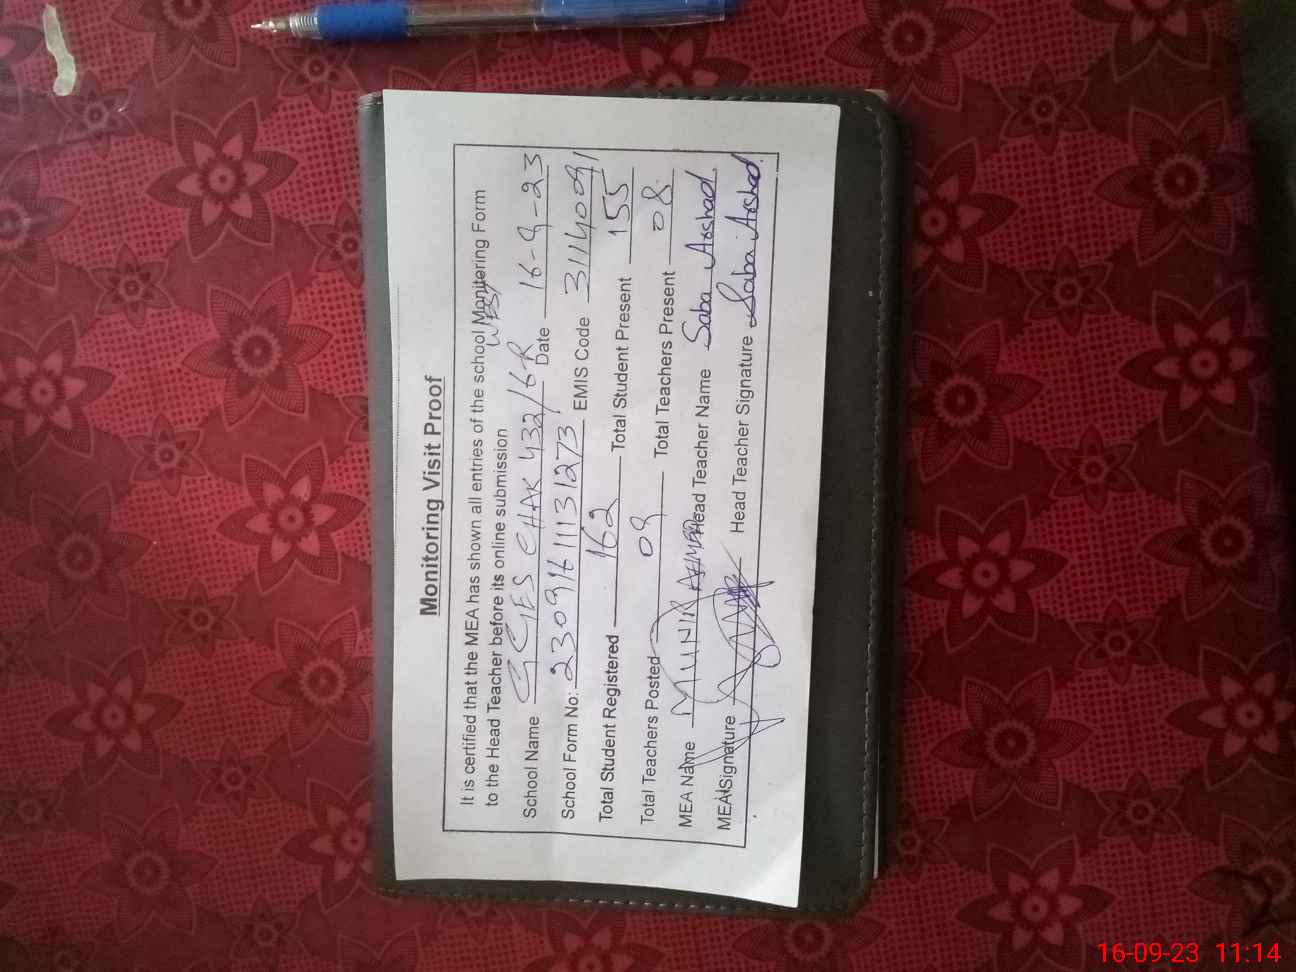 Monitoring Visit Proof
It is certified that the MEA has shown all entries of the school Monitering Form
to the Head Teacher before its online submission
WEST
School Name GGES CHAK 432/6R Date 16-9-23
School Form No: 23091611131273 EMIS Code 31140091
Total Student Registered 162 Total Student Present 155
Total Teachers Posted 09 Total Teachers Present 08
MEA Name MUNIR AHMAD Head Teacher Name Saba Arshad
MEA Signature Head Teacher Signature Saba Arshad
16-09-23 11:14